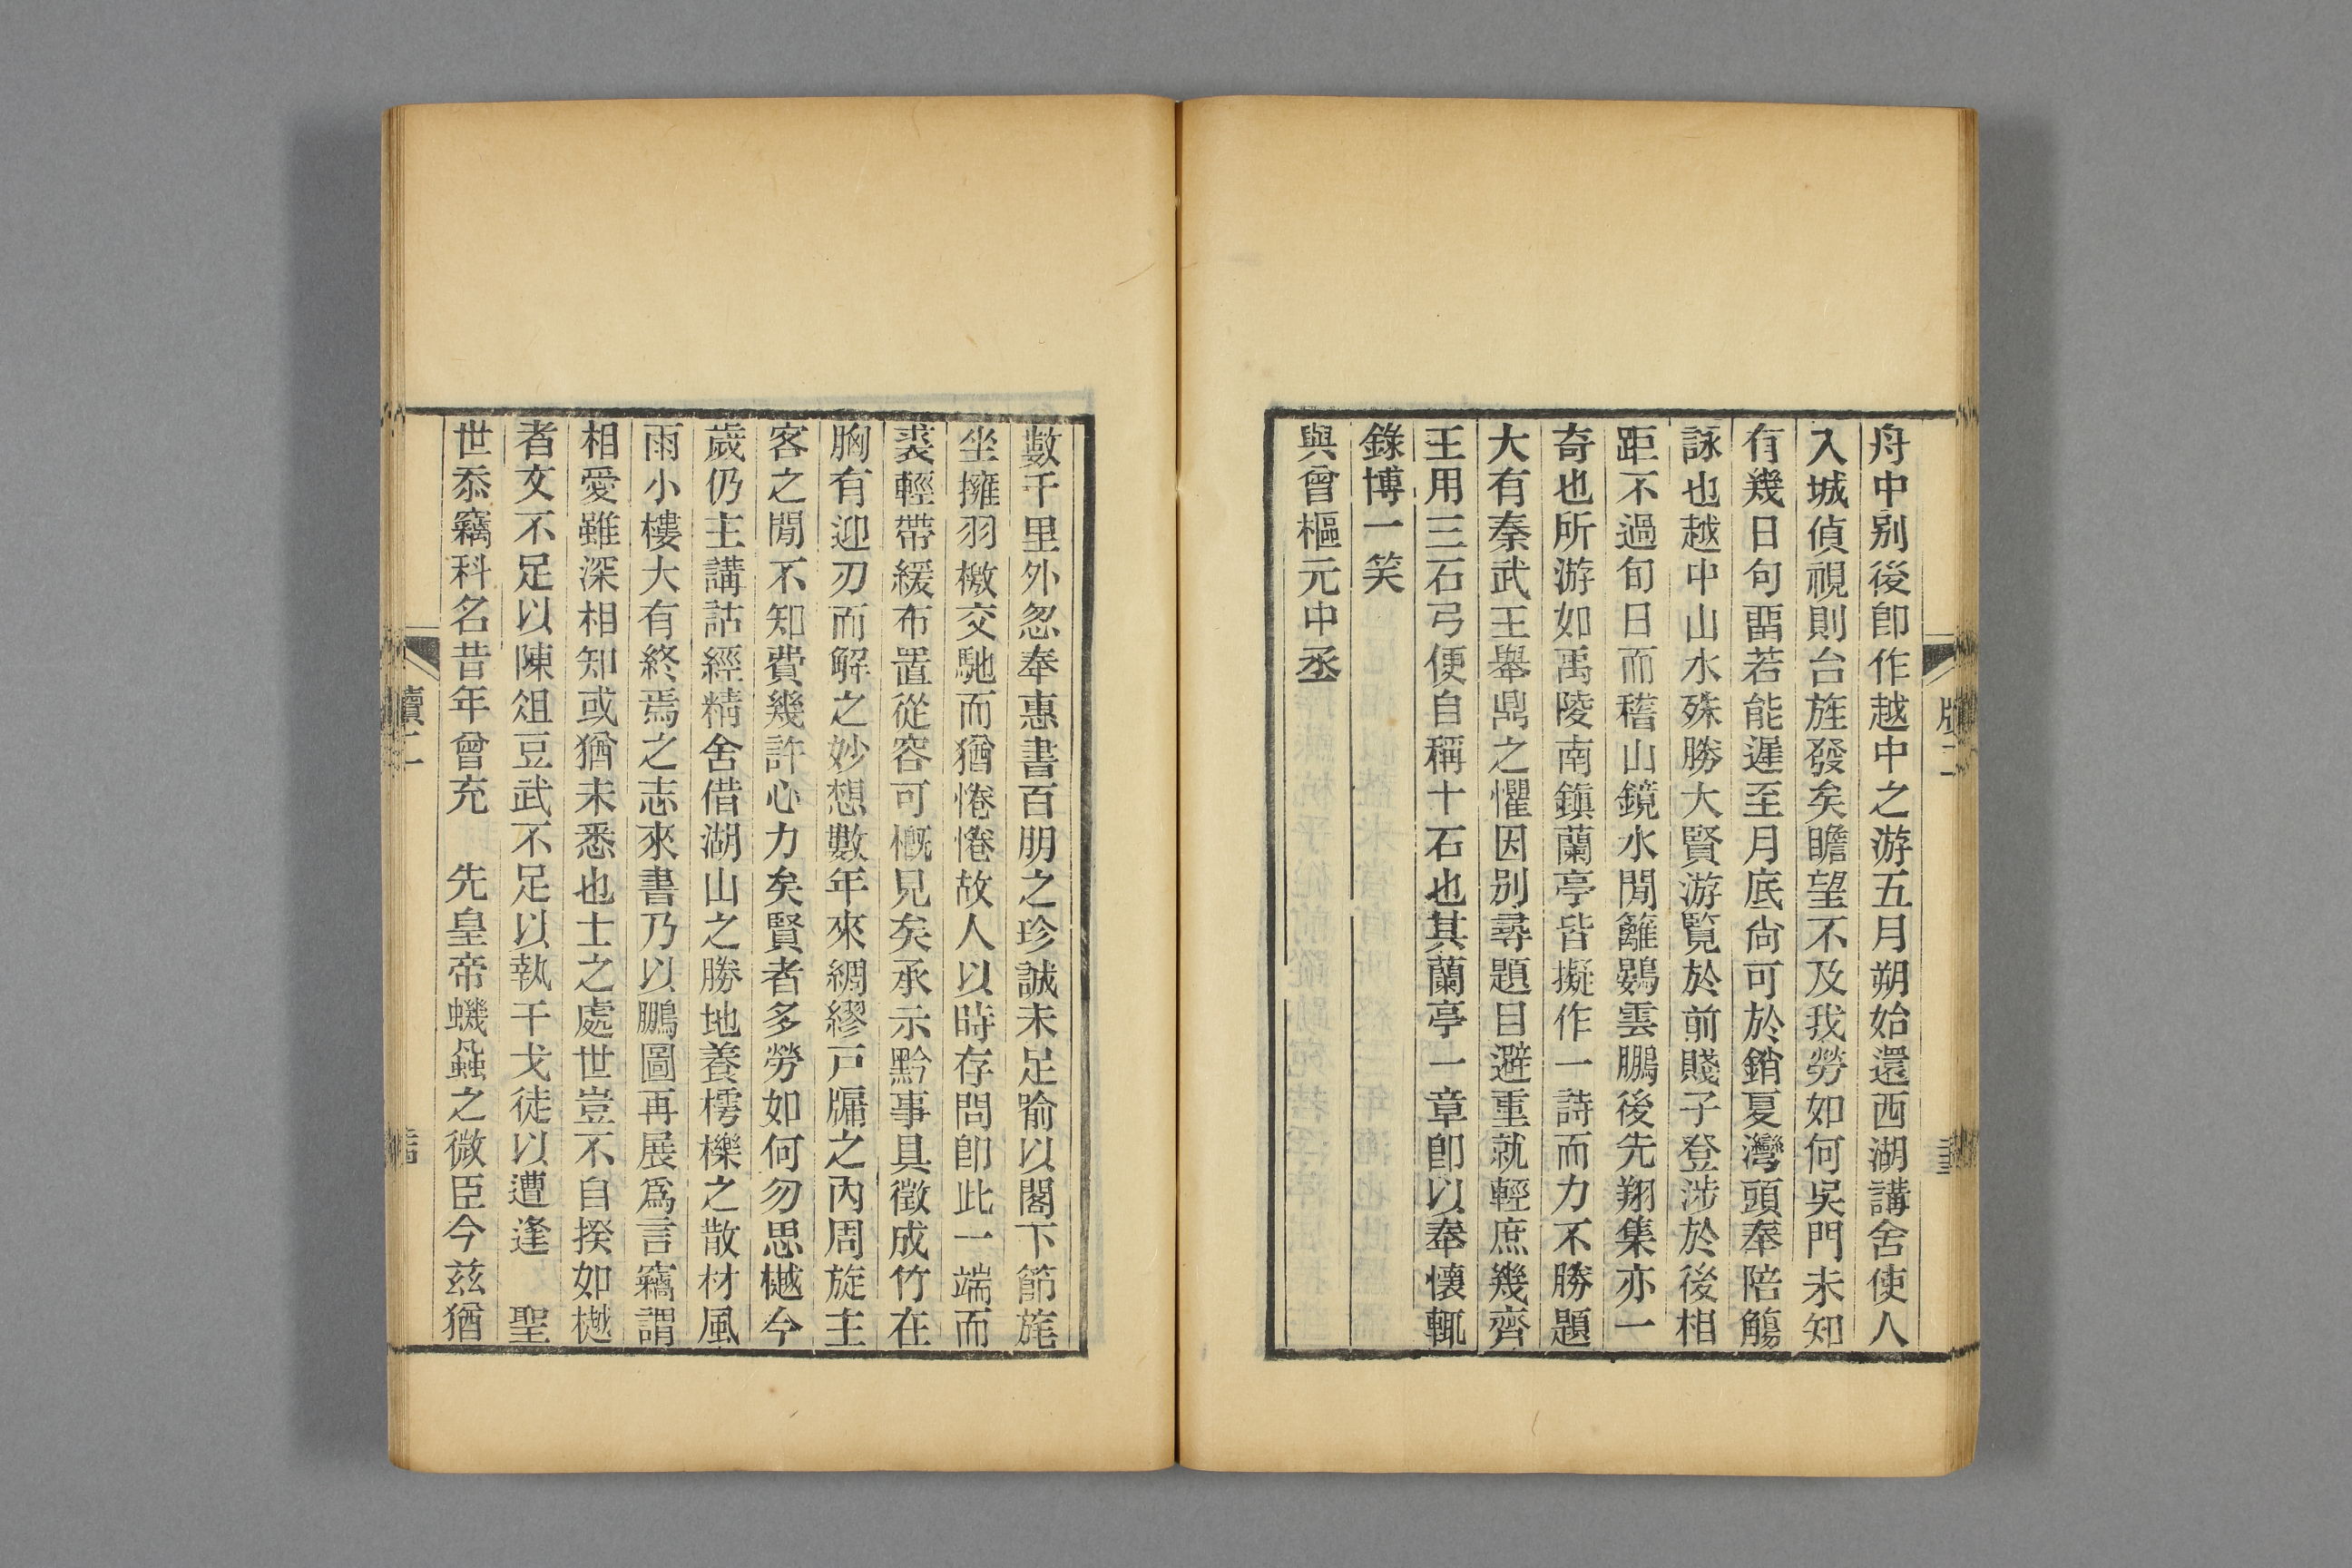 舟中别後卽作越中之游五月朔始還西湖講舍使人
入城偵視則台旌發矣瞻望不及我勞如何吳門未知
有幾日句畱若能遲至月底尙可於銷夏灣頭奉陪觴
詠也越中山水殊勝大賢游覽於前賤子登涉於後相
距不過旬日而稽山鏡水閒籬鷃雲鵬後先翔集亦一
奇也所游如禹陵南鎮蘭亭皆擬作一詩而力不勝題
大有秦武王舉鼎之懼因别尋題目避重就輕庶幾齊
王用三石弓便自稱十石也其蘭亭一章卽以奉懷輒
錄博一笑
與曾樞元中丞
數千里外忽奉惠書百朋之珍誠未足喻以閣下節旄
坐擁羽檄交馳而猶惓惓故人以時存問卽此一端而
裘輕帶緩布置從容可槪見矣承示黔事具徵成竹在
胸有迎刃而解之妙想數年來綢繆戸牖之內周旋主
客之閒不知費幾許心力矣賢者多勞如何勿思樾今
歲仍主講詁經精舍借湖山之勝地養樗櫟之散材風
雨小樓大有終焉之志來書乃以鵬圖再展爲言竊謂
相愛雖深相知或猶未悉也士之處世豈不自揆如樾
者文不足以陳俎豆武不足以執干戈徒以遭逢　聖
世忝竊科名昔年曾充　先皇帝蟣蝨之微臣今兹猶
牘二